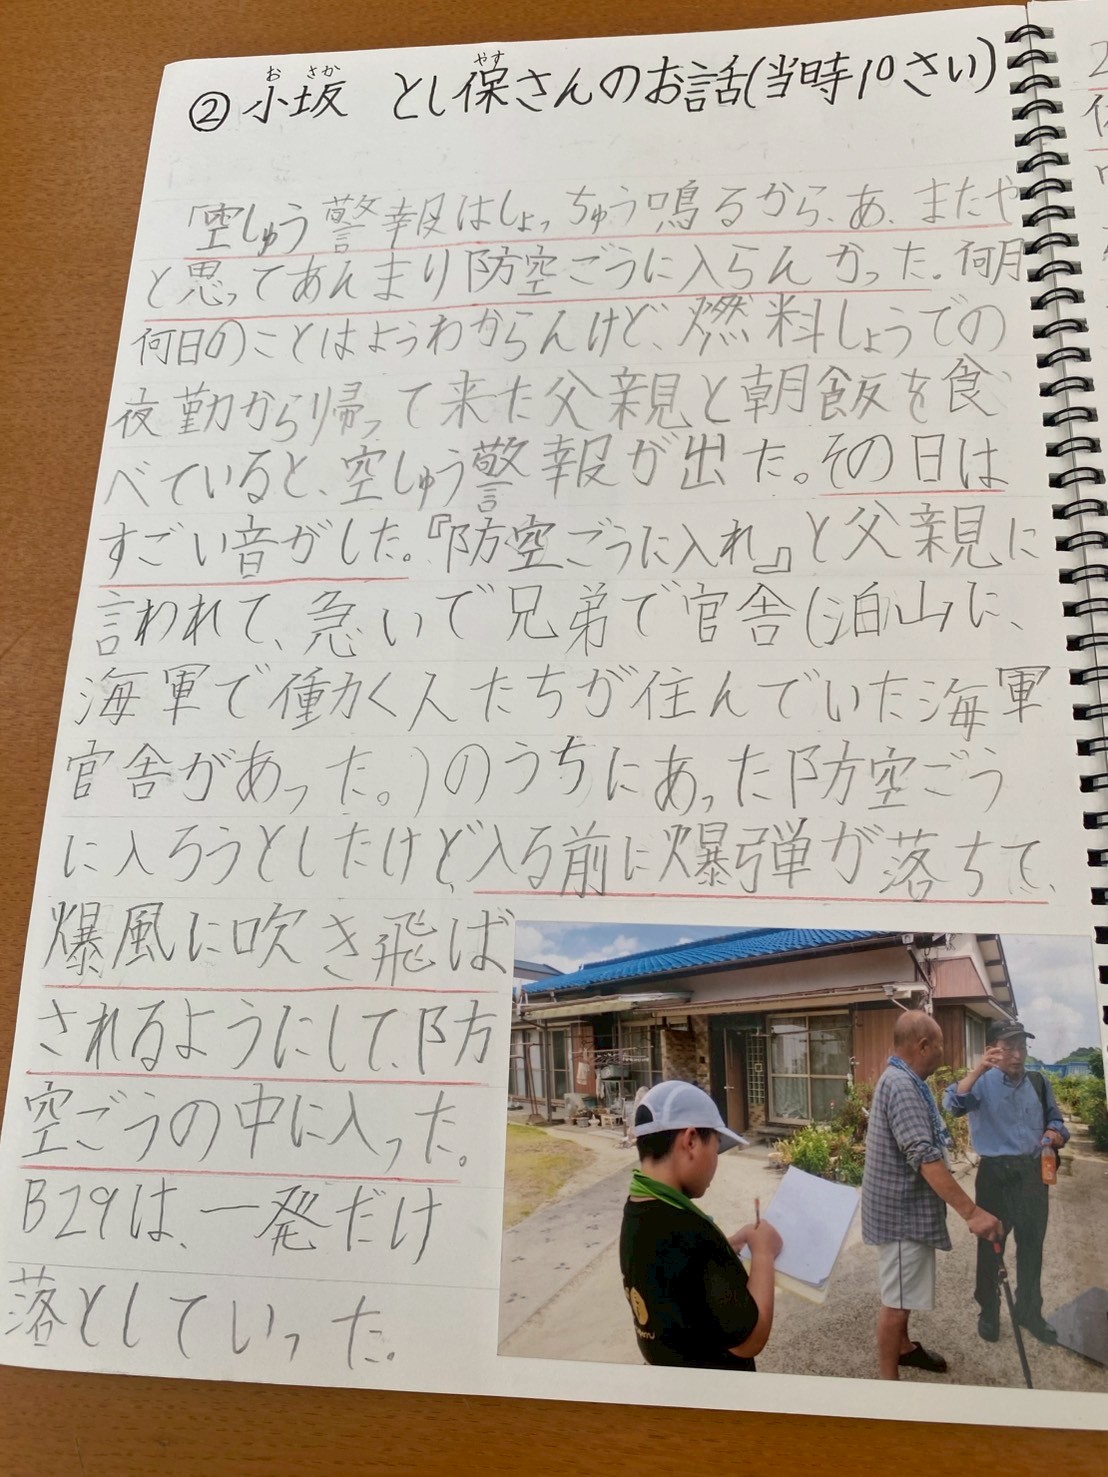 ②小坂 とし保さんのお話(当時10さい)
おさか やす
「空しゅう警報はしょっちゅう鳴るから、あ、またや
と思ってあんまり防空ごうに入らんかった。何月
何日のことはようわからんけど、燃料しょうでの
夜勤から帰って来た父親と朝飯を食
べていると、空しゅう警報が出た。その日は
すごい音がした。『防空ごうに入れ』と父親に
言われて、急いで兄弟で官舎(泊山に、
海軍で働く人たちが住んでいた海軍
官舎があった。)のうちにあった防空ごう
に入ろうとしたけど、入る前に爆弾が落ちて、
爆風に吹き飛ば
されるようにして、防
空ごうの中に入った。
B29は、一発だけ
落としていった。